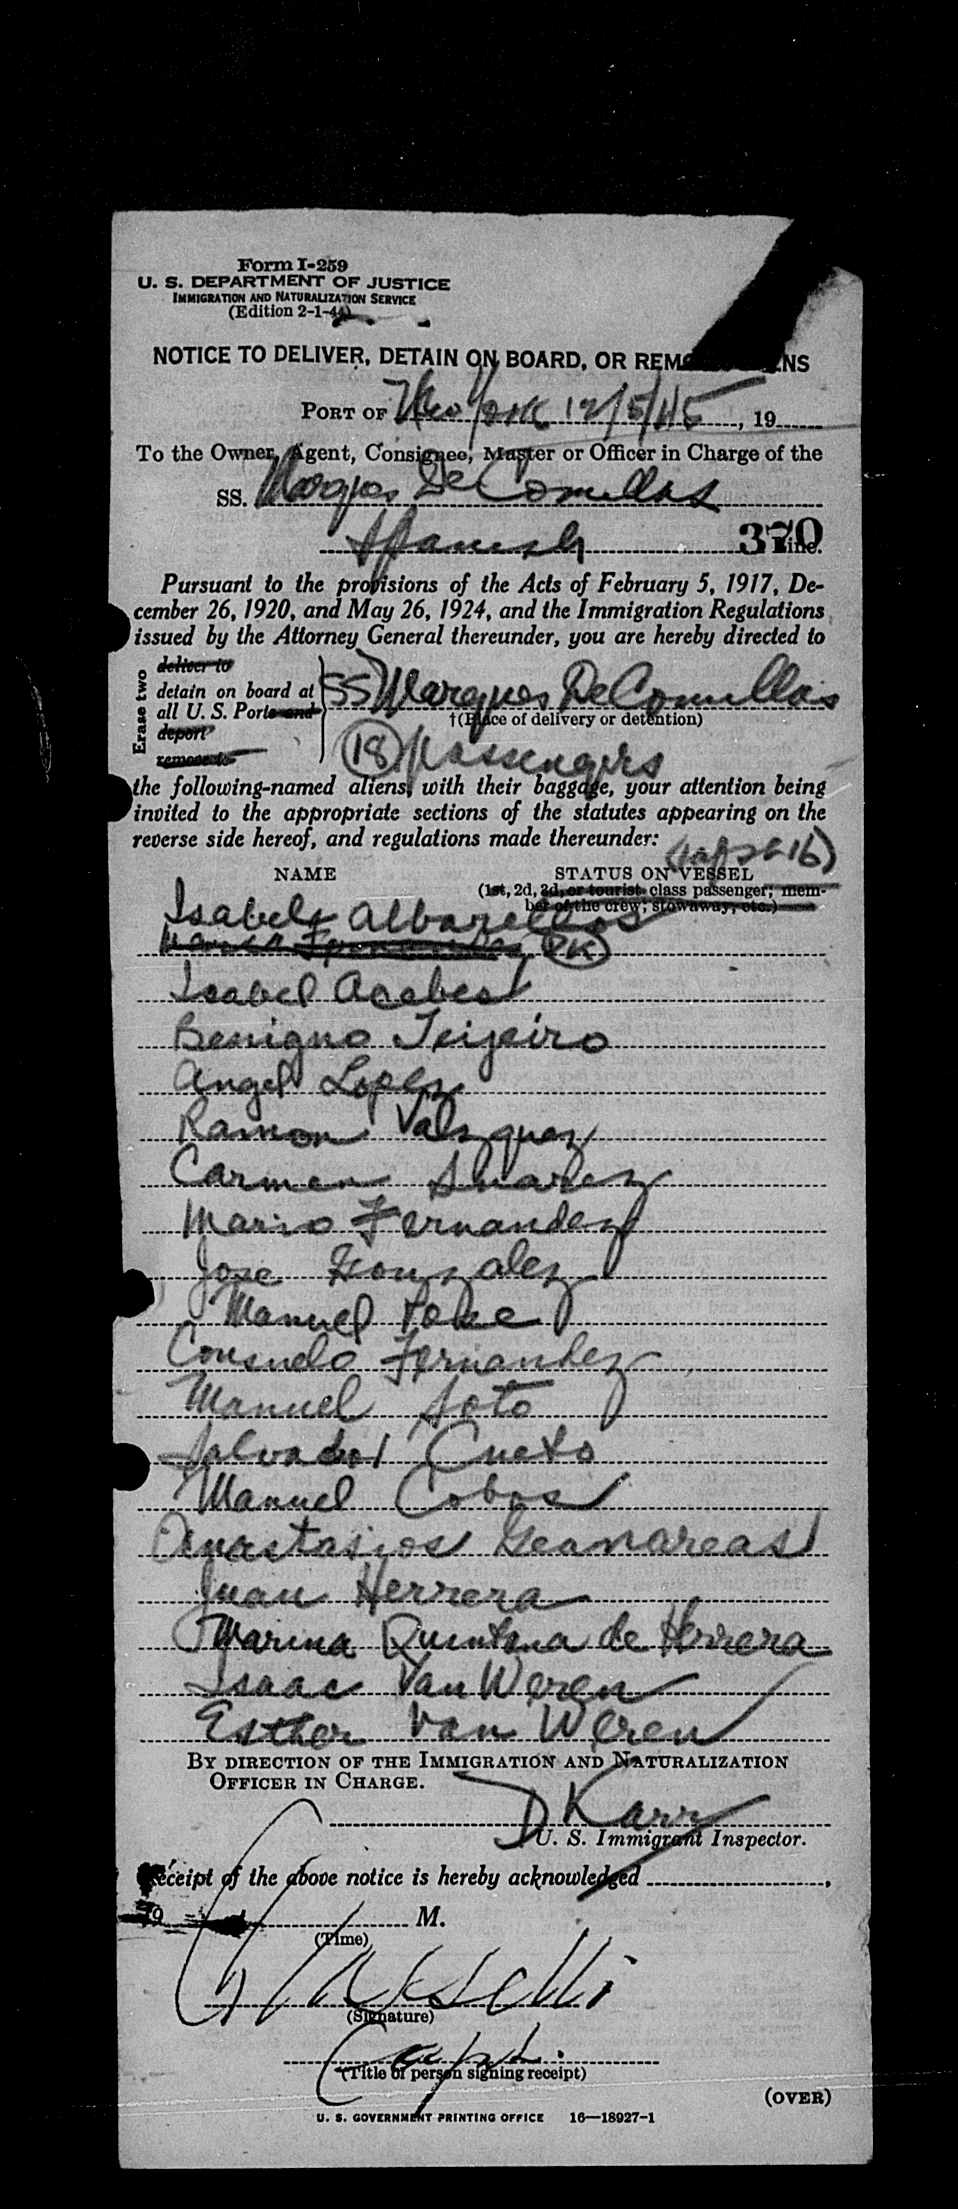 Form I-259
U. S. DEPARTMENT OF JUSTICE
IMMIGRATION AND NATURALIZATION SERVICE
(Edition 2-1-44)
NOTICE TO DELIVER, DETAIN ON BOARD, OR REM NS
PORT OF New York 12/5/45, 19
To the Owner, Agent, Consignee, Master or Officer in Charge of the
SS. Marques De Comillas
Spanish 370 Line.
Pursuant to the provisions of the Acts of February 5, 1917, De-
cember 26, 1920, and May 26, 1924, and the Immigration Regulations
issued by the Attorney General thereunder, you are hereby directed to
Erase two
deliver to
detain on board at
all U. S. Ports and
deport
remove to
SS Marques De Comullas
†(Place of delivery or detention)
(18) passengers
the following-named aliens, with their baggage, your attention being
invited to the appropriate sections of the statutes appearing on the
reverse side hereof, and regulations made thereunder:
NAME STATUS ON VESSEL
(1st, 2d, 3d, or tourist class passenger; mem-
ber of the crew; stowaway, etc.)
Isabel Albarellos
Fernandez DK
Isabel Acebes
Benigno Teijeiro
Angel Lopez
Ramon Valzquez
Carmen Suarez
Mario Fernandez
Jose Gonzalez
Manuel
Consuelo Fernandez
Manuel Soto
Salvador Cueto
Manuel Cobos
Anastasios Geanareas
Juan Herrera
Marina Quintana de Herrera
Isaac Van Weren
Esther Van Weren
BY DIRECTION OF THE IMMIGRATION AND NATURALIZATION
OFFICER IN CHARGE.
D Karr
U. S. Immigrant Inspector.
Receipt of the above notice is hereby acknowledged,
19 M.
(Time)
(Signature)
Capt.
(Title of person signing receipt)
(OVER)
U. S. GOVERNMENT PRINTING OFFICE 16—18927-1